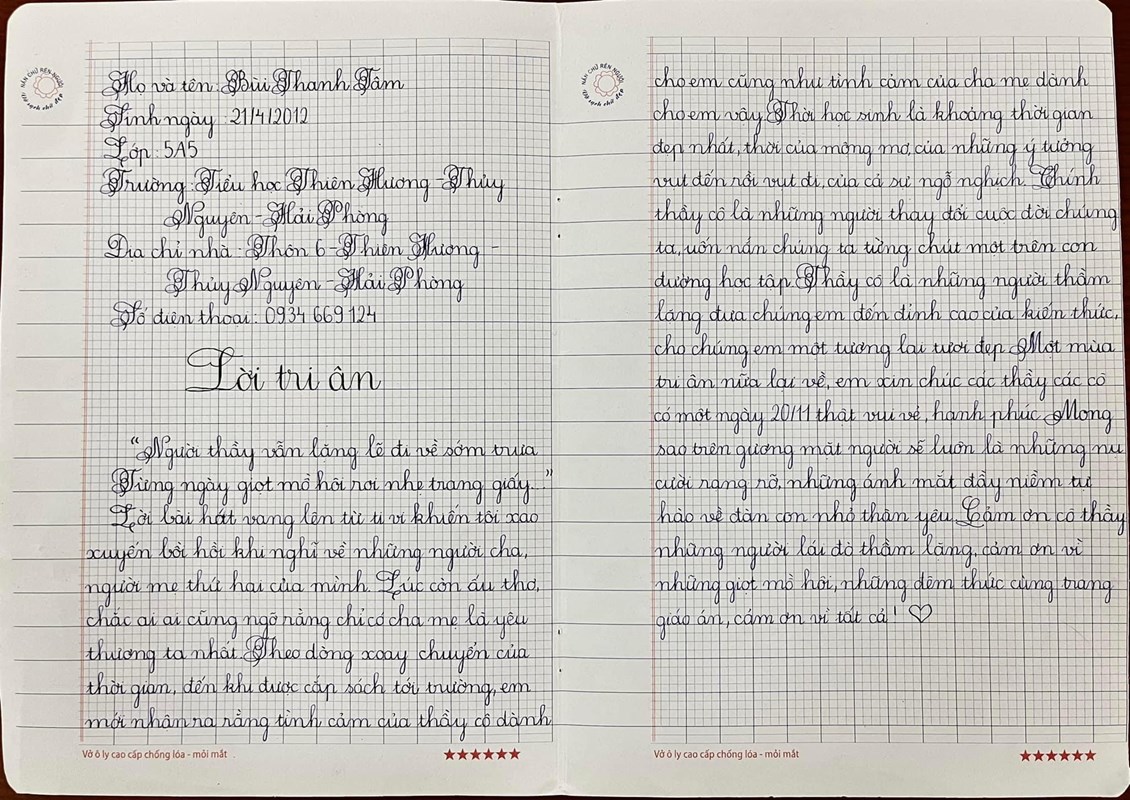 NẮN CHỮ RÈN NGƯỜI
Giữ sạch chữ đẹp
Họ và tên: Bùi Thanh Tâm
Sinh ngày: 21/4/2012
Lớp: 5A5
Trường: Tiểu học Thiên Hương - Thủy
Nguyên - Hải Phòng
Địa chỉ nhà: Thôn 6 - Thiên Hương -
Thủy Nguyên - Hải Phòng
Số điện thoại: 0934 669 124
Lời tri ân
"Người thầy vẫn lặng lẽ đi về sớm trưa
Từng ngày giọt mồ hôi rơi nhẹ trang giấy..."
Lời bài hát vang lên từ ti vi khiến tôi xao
xuyến bồi hồi khi nghĩ về những người cha,
người mẹ thứ hai của mình. Lúc còn ấu thơ,
chắc ai ai cũng ngỡ rằng chỉ có cha mẹ là yêu
thương ta nhất. Theo dòng xoay chuyển của
thời gian, đến khi được cắp sách tới trường, em
mới nhận ra rằng tình cảm của thầy cô dành
Vở ô ly cao cấp chống lóa - mỏi mắt
NẮN CHỮ RÈN NGƯỜI
Giữ sạch chữ đẹp
cho em cũng như tình cảm của cha mẹ dành
cho em vậy. Thời học sinh là khoảng thời gian
đẹp nhất, thời của mộng mơ, của những ý tưởng
vụt đến rồi vụt đi, của cả sự ngỗ nghịch. Chính
thầy cô là những người thay đổi cuộc đời chúng
ta, uốn nắn chúng ta từng chút một trên con
đường học tập. Thầy cô là những người thầm
lặng đưa chúng em đến đỉnh cao của kiến thức,
cho chúng em một tương lai tươi đẹp. Một mùa
tri ân nữa lại về, em xin chúc các thầy các cô
có một ngày 20/11 thật vui vẻ, hạnh phúc. Mong
sao trên gương mặt người sẽ luôn là những nụ
cười rạng rỡ, những ánh mắt đầy niềm tự
hào về đàn con nhỏ thân yêu. Cảm ơn cô thầy
những người lái đò thầm lặng, cảm ơn vì
những giọt mồ hôi, những đêm thức cùng trang
giáo án, cảm ơn vì tất cả! ♡
Vở ô ly cao cấp chống lóa - mỏi mắt